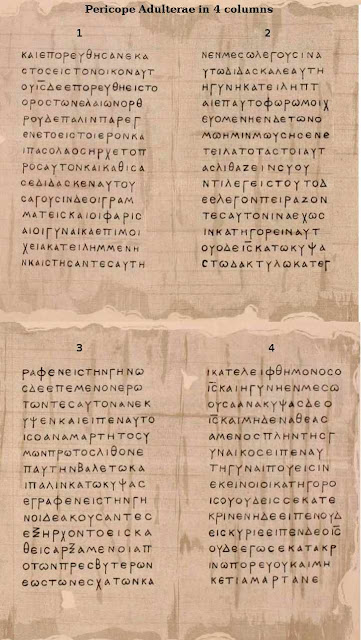 Pericope Adulterae in 4 columns
1
ΚΑΙΕΠΟΡΕΥΘΗϹΑΝΕΚΑ
ϹΤΟϹΕΙϹΤΟΝΟΙΚΟΝΑΥΤ
ΟΥΙ̅Ϲ̅ΔΕΕΠΟΡΕΥΘΗΕΙϹΤΟ
ΟΡΟϹΤΩΝΕΛΑΙΩΝΟΡΘ
ΡΟΥΔΕΠΑΛΙΝΠΑΡΕΓ
ΕΝΕΤΟΕΙϹΤΟΙΕΡΟΝΚΑ
ΙΠΑϹΟΛΑΟϹΗΡΧΕΤΟΠ
ΡΟϹΑΥΤΟΝΚΑΙΚΑΘΙϹΑ
ϹΕΔΙΔΑϹΚΕΝΑΥΤΟΥ
ϹΑΓΟΥϹΙΝΔΕΟΙΓΡΑΜ
ΜΑΤΕΙϹΚΑΙΟΙΦΑΡΙϹ
ΑΙΟΙΓΥΝΑΙΚΑΕΠΙΜΟΙ
ΧΕΙΑΚΑΤΕΙΛΗΜΜΕΝΗ
ΝΚΑΙϹΤΗϹΑΝΤΕϹΑΥΤΗ
2
ΝΕΝΜΕϹΩΛΕΓΟΥϹΙΝΑ
ΥΤΩΔΙΔΑϹΚΑΛΕΑΥΤΗ
ΗΓΥΝΗΚΑΤΕΙΛΗΠΤ
ΑΙΕΠΑΥΤΟΦΟΡΩΜΟΙΧ
ΕΥΟΜΕΝΗΕΝΔΕΤΩΝΟ
ΜΩΗΜΙΝΜΩΥϹΗϹΕΝΕ
ΤΕΙΛΑΤΟΤΑϹΤΟΙΑΥΤ
ΑϹΛΙΘΑΖΕΙΝϹΥΟΥ
ΝΤΙΛΕΓΕΙϹΤΟΥΤΟΔ
ΕΕΛΕΓΟΝΠΕΙΡΑΖΟΝ
ΤΕϹΑΥΤΟΝΙΝΑΕΧΩϹ
ΙΝΚΑΤΗΓΟΡΕΙΝΑΥΤ
ΟΥΟΔΕΙ̅Ϲ̅ΚΑΤΩΚΥΨΑ
ϹΤΩΔΑΚΤΥΛΩΚΑΤΕΓ
3
ΡΑΦΕΝΕΙϹΤΗΝΓΗΝΩ
ϹΔΕΕΠΕΜΕΝΟΝΕΡΩ
ΤΩΝΤΕϹΑΥΤΟΝΑΝΕΚ
ΥΨΕΝΚΑΙΕΙΠΕΝΑΥΤΟ
ΙϹΟΑΝΑΜΑΡΤΗΤΟϹΥ
ΜΩΝΠΡΩΤΟϹΛΙΘΟΝΕ
ΠΑΥΤΗΝΒΑΛΕΤΩΚΑ
ΙΠΑΛΙΝΚΑΤΩΚΥΨΑϹ
ΕΓΡΑΦΕΝΕΙϹΤΗΝΓΗ
ΝΟΙΔΕΑΚΟΥϹΑΝΤΕϹ
ΕΞΗΡΧΟΝΤΟΕΙϹΚΑ
ΘΕΙϹΑΡΞΑΜΕΝΟΙΑΠ
ΟΤΩΝΠΡΕϹΒΥΤΕΡΩΝ
ΕΩϹΤΩΝΕϹΧΑΤΩΝΚΑ
4
ΙΚΑΤΕΛΕΙΦΘΗΜΟΝΟϹΟ
Ι̅Ϲ̅ΚΑΙΗΓΥΝΗΕΝΜΕϹΩ
ΟΥϹΑΑΝΑΚΥΨΑϹΔΕΟ
Ι̅Ϲ̅ΚΑΙΜΗΔΕΝΑΘΕΑϹ
ΑΜΕΝΟϹΠΛΗΝΤΗϹΓ
ΥΝΑΙΚΟϹΕΙΠΕΝΑΥ
ΤΗΓΥΝΑΙΠΟΥΕΙϹΙΝ
ΕΚΕΙΝΟΙΟΙΚΑΤΗΓΟΡΟ
ΙϹΟΥΟΥΔΕΙϹϹΕΚΑΤΕ
ΚΡΙΝΕΝΗΔΕΕΙΠΕΝΟΥΔ
ΕΙϹΚΥΡΙΕΕΙΠΕΝΔΕΟΙ̅Ϲ̅
ΟΥΔΕΕΓΩϹΕΚΑΤΑΚΡ
ΙΝΩΠΟΡΕΥΟΥΚΑΙΜΗ
ΚΕΤΙΑΜΑΡΤΑΝΕ